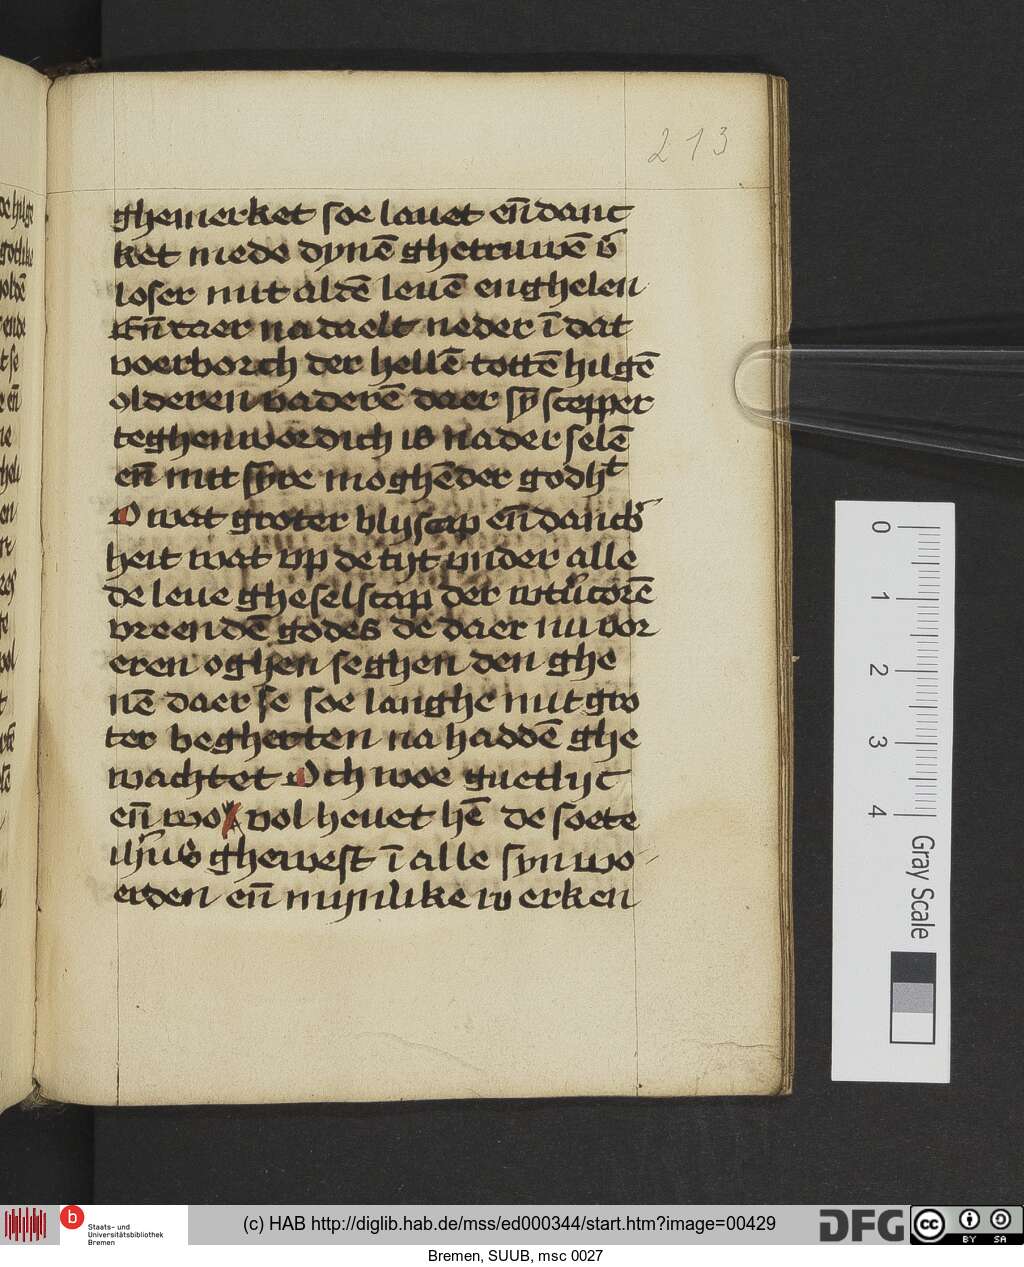 213
ghemerket soe lauet en̄ danc
ket mede dynē ghetruwē v̄
loser mit aldē leuē enghelen
En̄ daer na daelt neder ī dat
voerborch der hellē tottē hilgē
olderen vaderē daer sȳ scepper
teghenwordich is na der selē
en̄ mit synre moghēder godht
O wat groter blijscap en̄ dancb̄
heit wat vp de tijt vnder alle
de leue gheselscap der
vreendē godes de daer nu vor
eren oghen seghen den ghe
nē daer se soe langhe mit gro
ter begherten na haddē ghe
wachtet Och woe guetlijc
en̄ wo vol heuet hē de soete
ihūs ghewest ī alle syn wo
erden en̄ mynlike werken
0
1
2
3
4
Gray Scale
b Staats- und
Universitätsbibliothek
Bremen
(c) HAB http://diglib.hab.de/mss/ed000344/start.htm?image=00429
DFG
cc BY SA
Bremen, SUUB, msc 0027